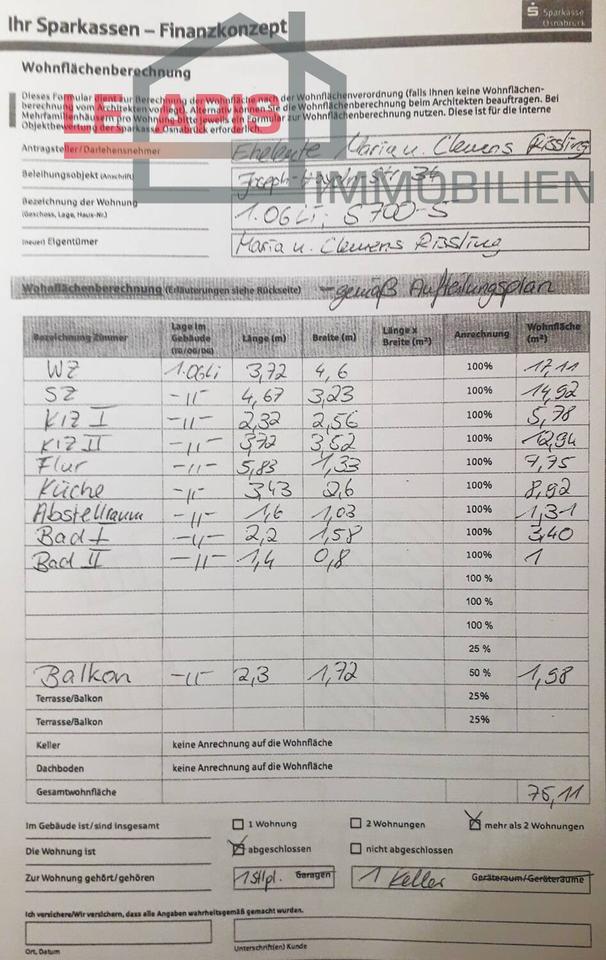 Ihr Sparkassen – Finanzkonzept
Sparkasse
Osnabrück
Wohnflächenberechnung
Dieses Formular dient zur Berechnung der Wohnfläche nach der Wohnflächenverordnung (falls Ihnen keine Wohnflächen-
berechnung vom Architekten vorliegt). Alternativ können Sie die Wohnflächenberechnung beim Architekten beauftragen. Bei
Mehrfamilienhäusern pro Wohnung bitte jeweils ein Formular zur Wohnflächenberechnung nutzen. Diese ist für die interne
Objektbewertung der Sparkasse Osnabrück erforderlich.
LE APIS
IMMOBILIEN
Antragsteller/Darlehensnehmer Eheleute Maria u. Clemens Rissling
Beleihungsobjekt (Anschrift) Joseph-Haydn-Str. 34
Bezeichnung der Wohnung
(Geschoss, Lage, Haus-Nr.) 1.OG Li, S 700-5
(neuer) Eigentümer Maria u. Clemens Rissling
Wohnflächenberechnung (Erläuterungen siehe Rückseite) - gemäß Aufteilungsplan
Bezeichnung Zimmer Lage im Gebäude (EG/OG/DG) Länge (m) Breite (m) Länge x Breite (m²) Anrechnung Wohnfläche (m²)
WZ 1.OG Li 3,72 4,6 100% 17,11
SZ -11- 4,67 3,23 100% 14,92
KIZ I -11- 2,32 2,56 100% 5,78
KIZ II -11- 3,72 3,52 100% 12,94
Flur -11- 5,83 1,33 100% 7,75
Küche -11- 3,43 2,6 100% 8,92
Abstellraum -11- 1,6 1,03 100% 1,31
Bad I -11- 2,2 1,58 100% 3,40
Bad II -11- 1,4 0,8 100% 1
100 %
100 %
100 %
25 %
Balkon -11- 2,3 1,72 50 % 1,98
Terrasse/Balkon 25%
Terrasse/Balkon 25%
Keller keine Anrechnung auf die Wohnfläche
Dachboden keine Anrechnung auf die Wohnfläche
Gesamtwohnfläche 75,11
Im Gebäude ist/sind insgesamt 1 Wohnung 2 Wohnungen mehr als 2 Wohnungen
Die Wohnung ist abgeschlossen nicht abgeschlossen
Zur Wohnung gehört/gehören 1 Stlpl. Garagen 1 Keller Geräteraum/Geräteräume
Ich versichere/Wir versichern, dass alle Angaben wahrheitsgemäß gemacht wurden.
Ort, Datum Unterschrift(en) Kunde